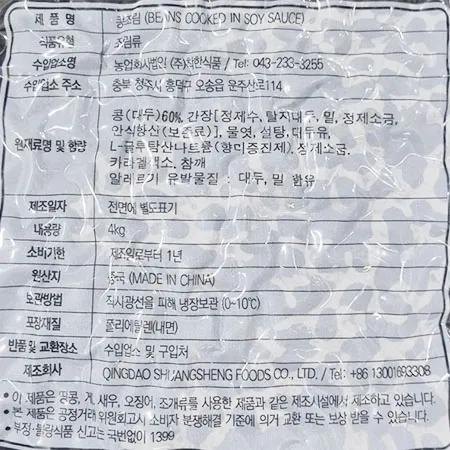 제 품 명 콩조림 (BEANS COOKED IN SOY SAUCE)
식품유형 조림류
수입업소명 농업회사법인 (주)착한식품 / Tel: 043-233-3255
수입업소 주소 충북 청주시 흥덕구 오송읍 운주산로114
원재료명 및 함량 콩(대두)60%, 간장[정제수, 탈지대두, 밀, 정제소금,
안식향산(보존료)], 물엿, 설탕, 대두유,
L-글루탐산나트륨(향미증진제), 정제소금,
카라멜색소, 참깨
알레르기 유발물질 : 대두, 밀 함유
제조일자 전면에 별도표기
내용량 4kg
소비기한 제조일로부터 1년
원산지 중국 (MADE IN CHINA)
보관방법 직사광선을 피해 냉장보관 (0~10℃)
포장재질 폴리에틸렌(내면)
반품 및 교환장소 수입업소 및 구입처
제조회사 QINGDAO SHUANGSHENG FOODS CO., LTD. / Tel: +86 13001693308
• 이 제품은 땅콩, 게, 새우, 오징어, 조개류를 사용한 제품과 같은 제조시설에서 제조하고 있습니다.
• 본 제품은 공정거래 위원회고시 소비자 분쟁해결 기준에 의거 교환 또는 보상 받을 수 있습니다.
• 부정·불량식품 신고는 국번없이 1399